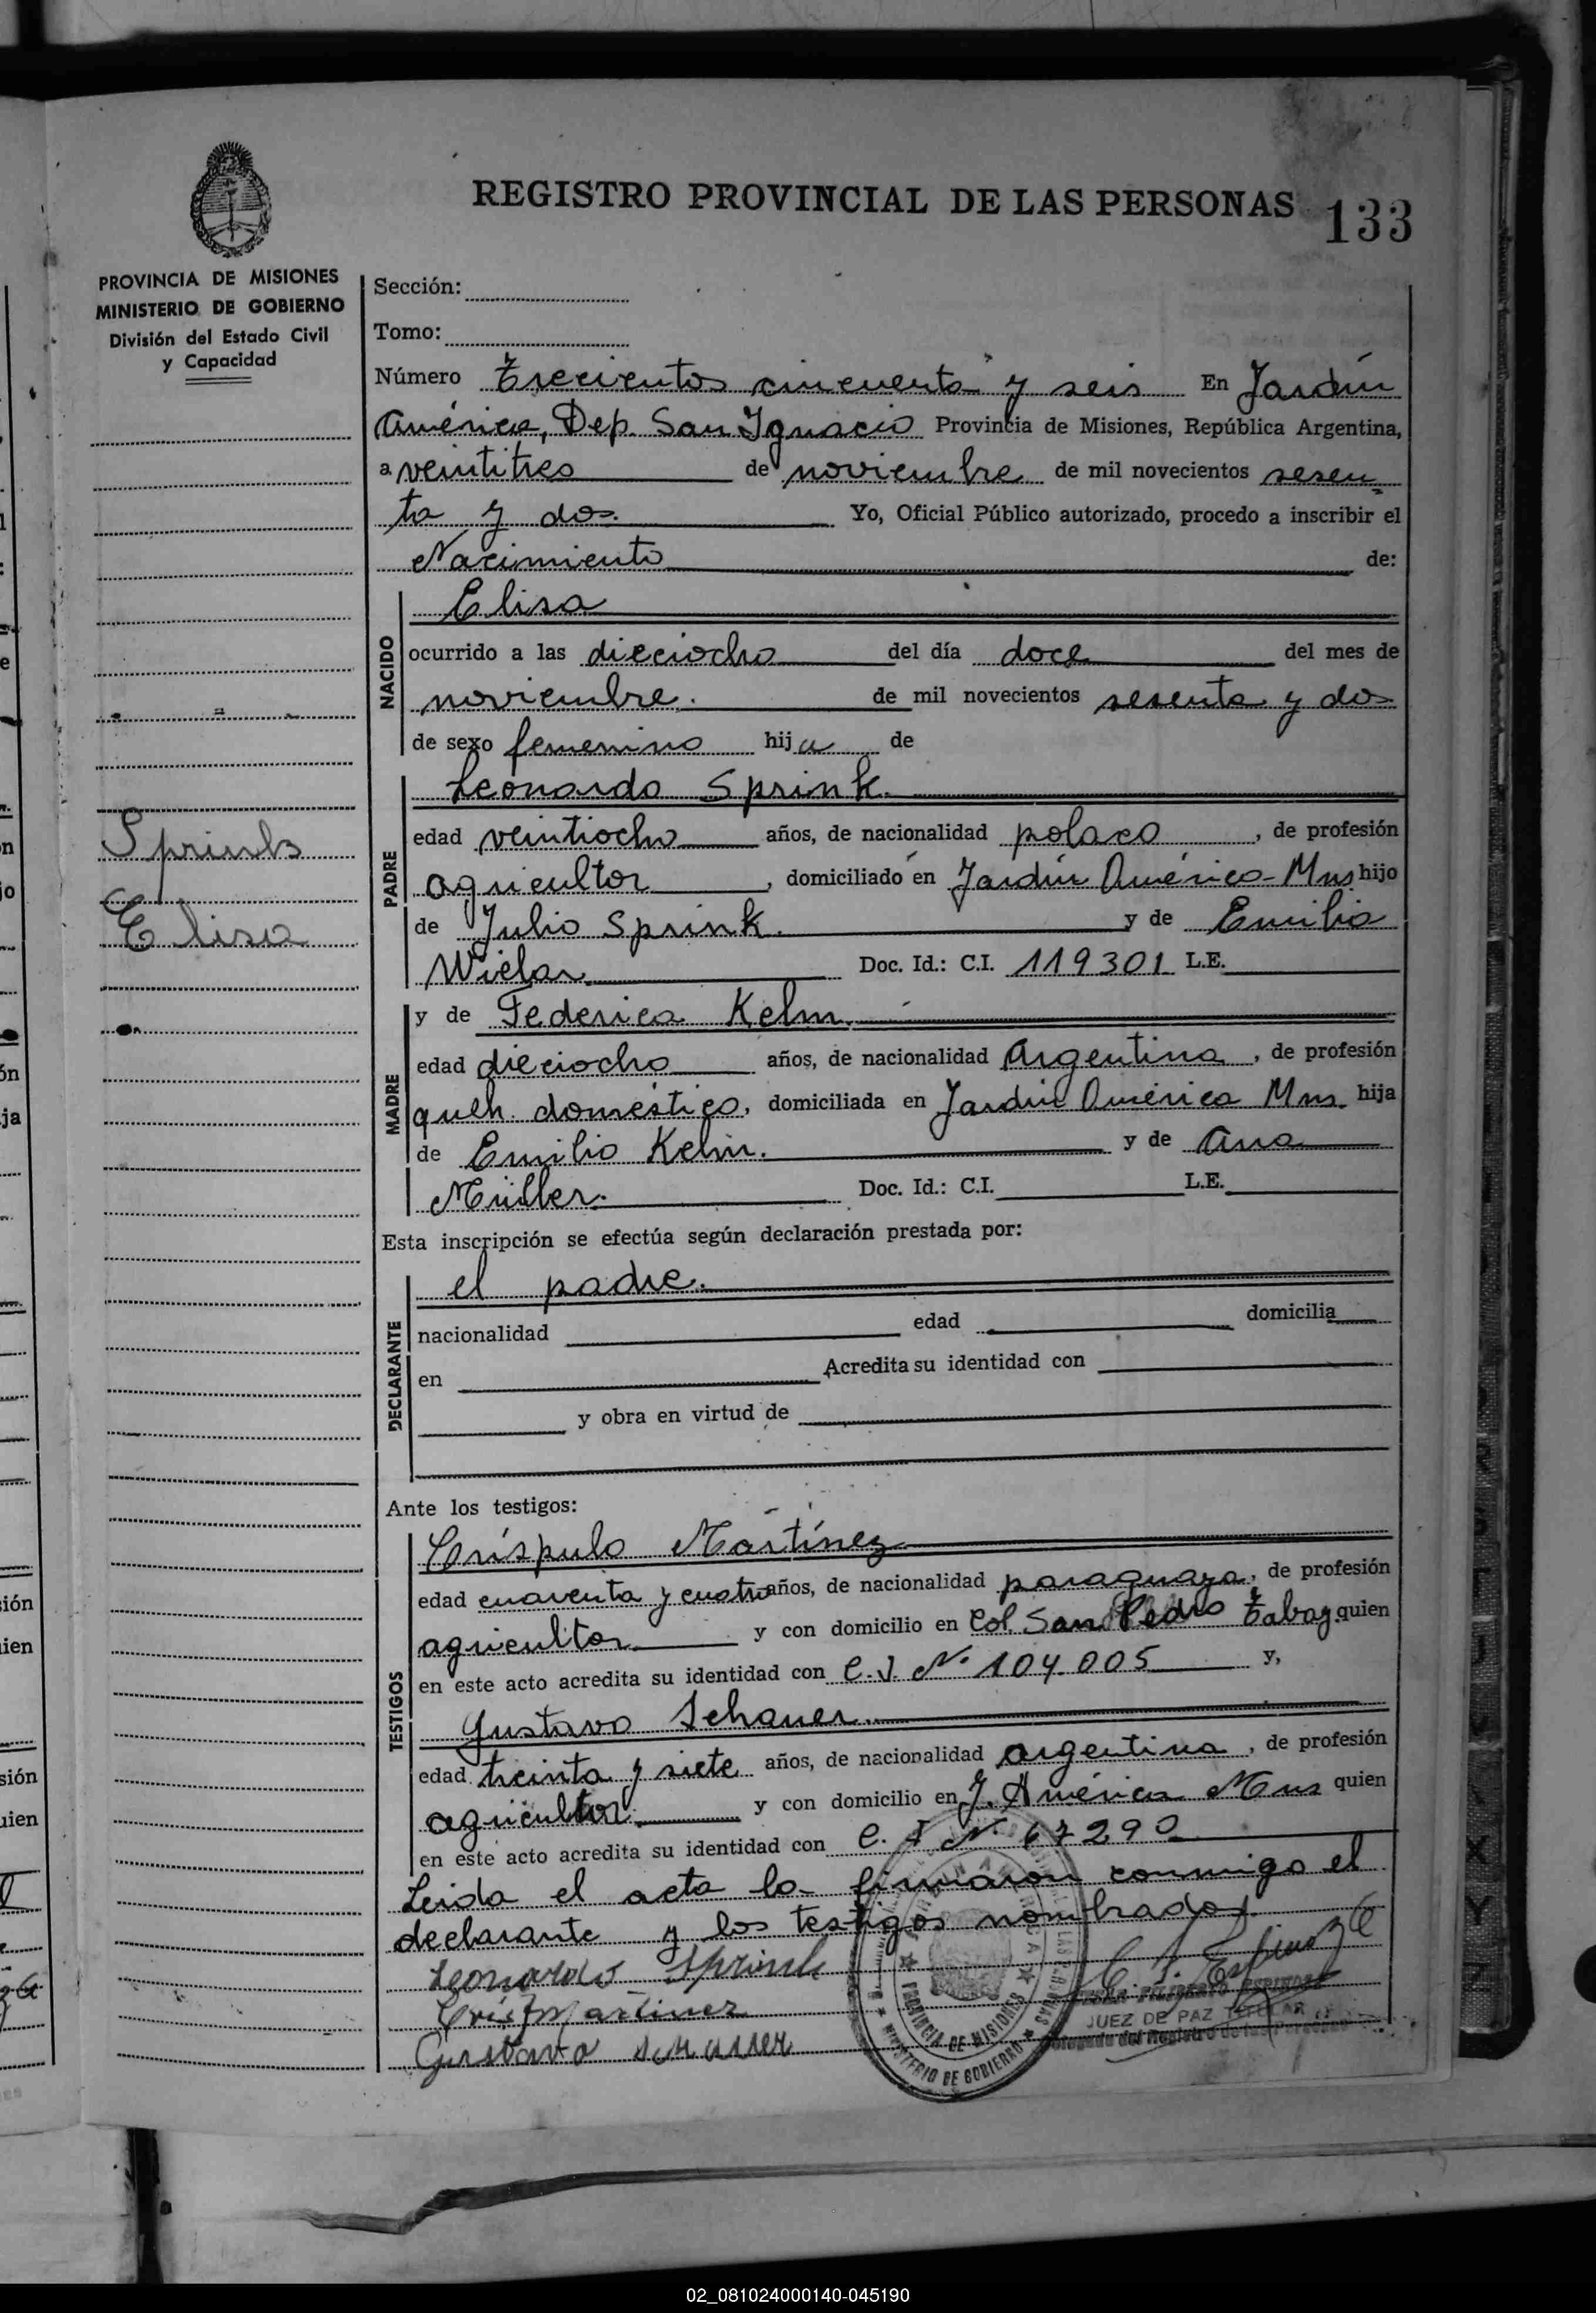 REGISTRO PROVINCIAL DE LAS PERSONAS 133
PROVINCIA DE MISIONES
MINISTERIO DE GOBIERNO
División del Estado Civil
y Capacidad
Sección:
Tomo:
Número Trecientos cincuenta y seis En Jardín
América, Dep. San Ignacio Provincia de Misiones, República Argentina,
a veintitres de noviembre de mil novecientos sesen
ta y dos. Yo, Oficial Público autorizado, procedo a inscribir el
Nacimiento de:
NACIDO
Elisa
ocurrido a las dieciocho del día doce del mes de
noviembre. de mil novecientos sesenta y dos
de sexo femenino hija de
PADRE
Leonardo Sprink.
edad veintiocho años, de nacionalidad polaco, de profesión
agricultor, domiciliado en Jardín América-Mns hijo
de Julio Sprink. y de Emilia
Wielar. Doc. Id.: C.I. 119301 L.E.
Sprink
Elisa
MADRE
y de Federica Kelm.
edad dieciocho años, de nacionalidad Argentina, de profesión
queh. domésticos, domiciliada en Jardín América Mns. hija
de Emilio Kelm. y de Ana
Müller. Doc. Id.: C.I. L.E.
Esta inscripción se efectúa según declaración prestada por:
DECLARANTE
el padre.
nacionalidad edad domicilia
en Acredita su identidad con
y obra en virtud de
Ante los testigos:
TESTIGOS
Críspulo Martínez
edad cuarenta y cuatro años, de nacionalidad paraguaya, de profesión
agricultor y con domicilio en Col. San Pedro Tabay quien
en este acto acredita su identidad con C.I. Nº 104.005 y,
Gustavo Schauer.
edad treinta y siete años, de nacionalidad argentina, de profesión
agricultor. y con domicilio en J. América Mns quien
en este acto acredita su identidad con C. I Nº 67290
Leida el acta la firmaron conmigo el
declarante y los testigos nombrados.
Leonardo Sprink
Crisp Martinez
Gustavo Schauer
C. F. Espinoza
JUEZ DE PAZ TITULAR
Delegado del Registro de las Personas
PROVINCIA DE MISIONES
MINISTERIO DE GOBIERNO
02_081024000140-045190